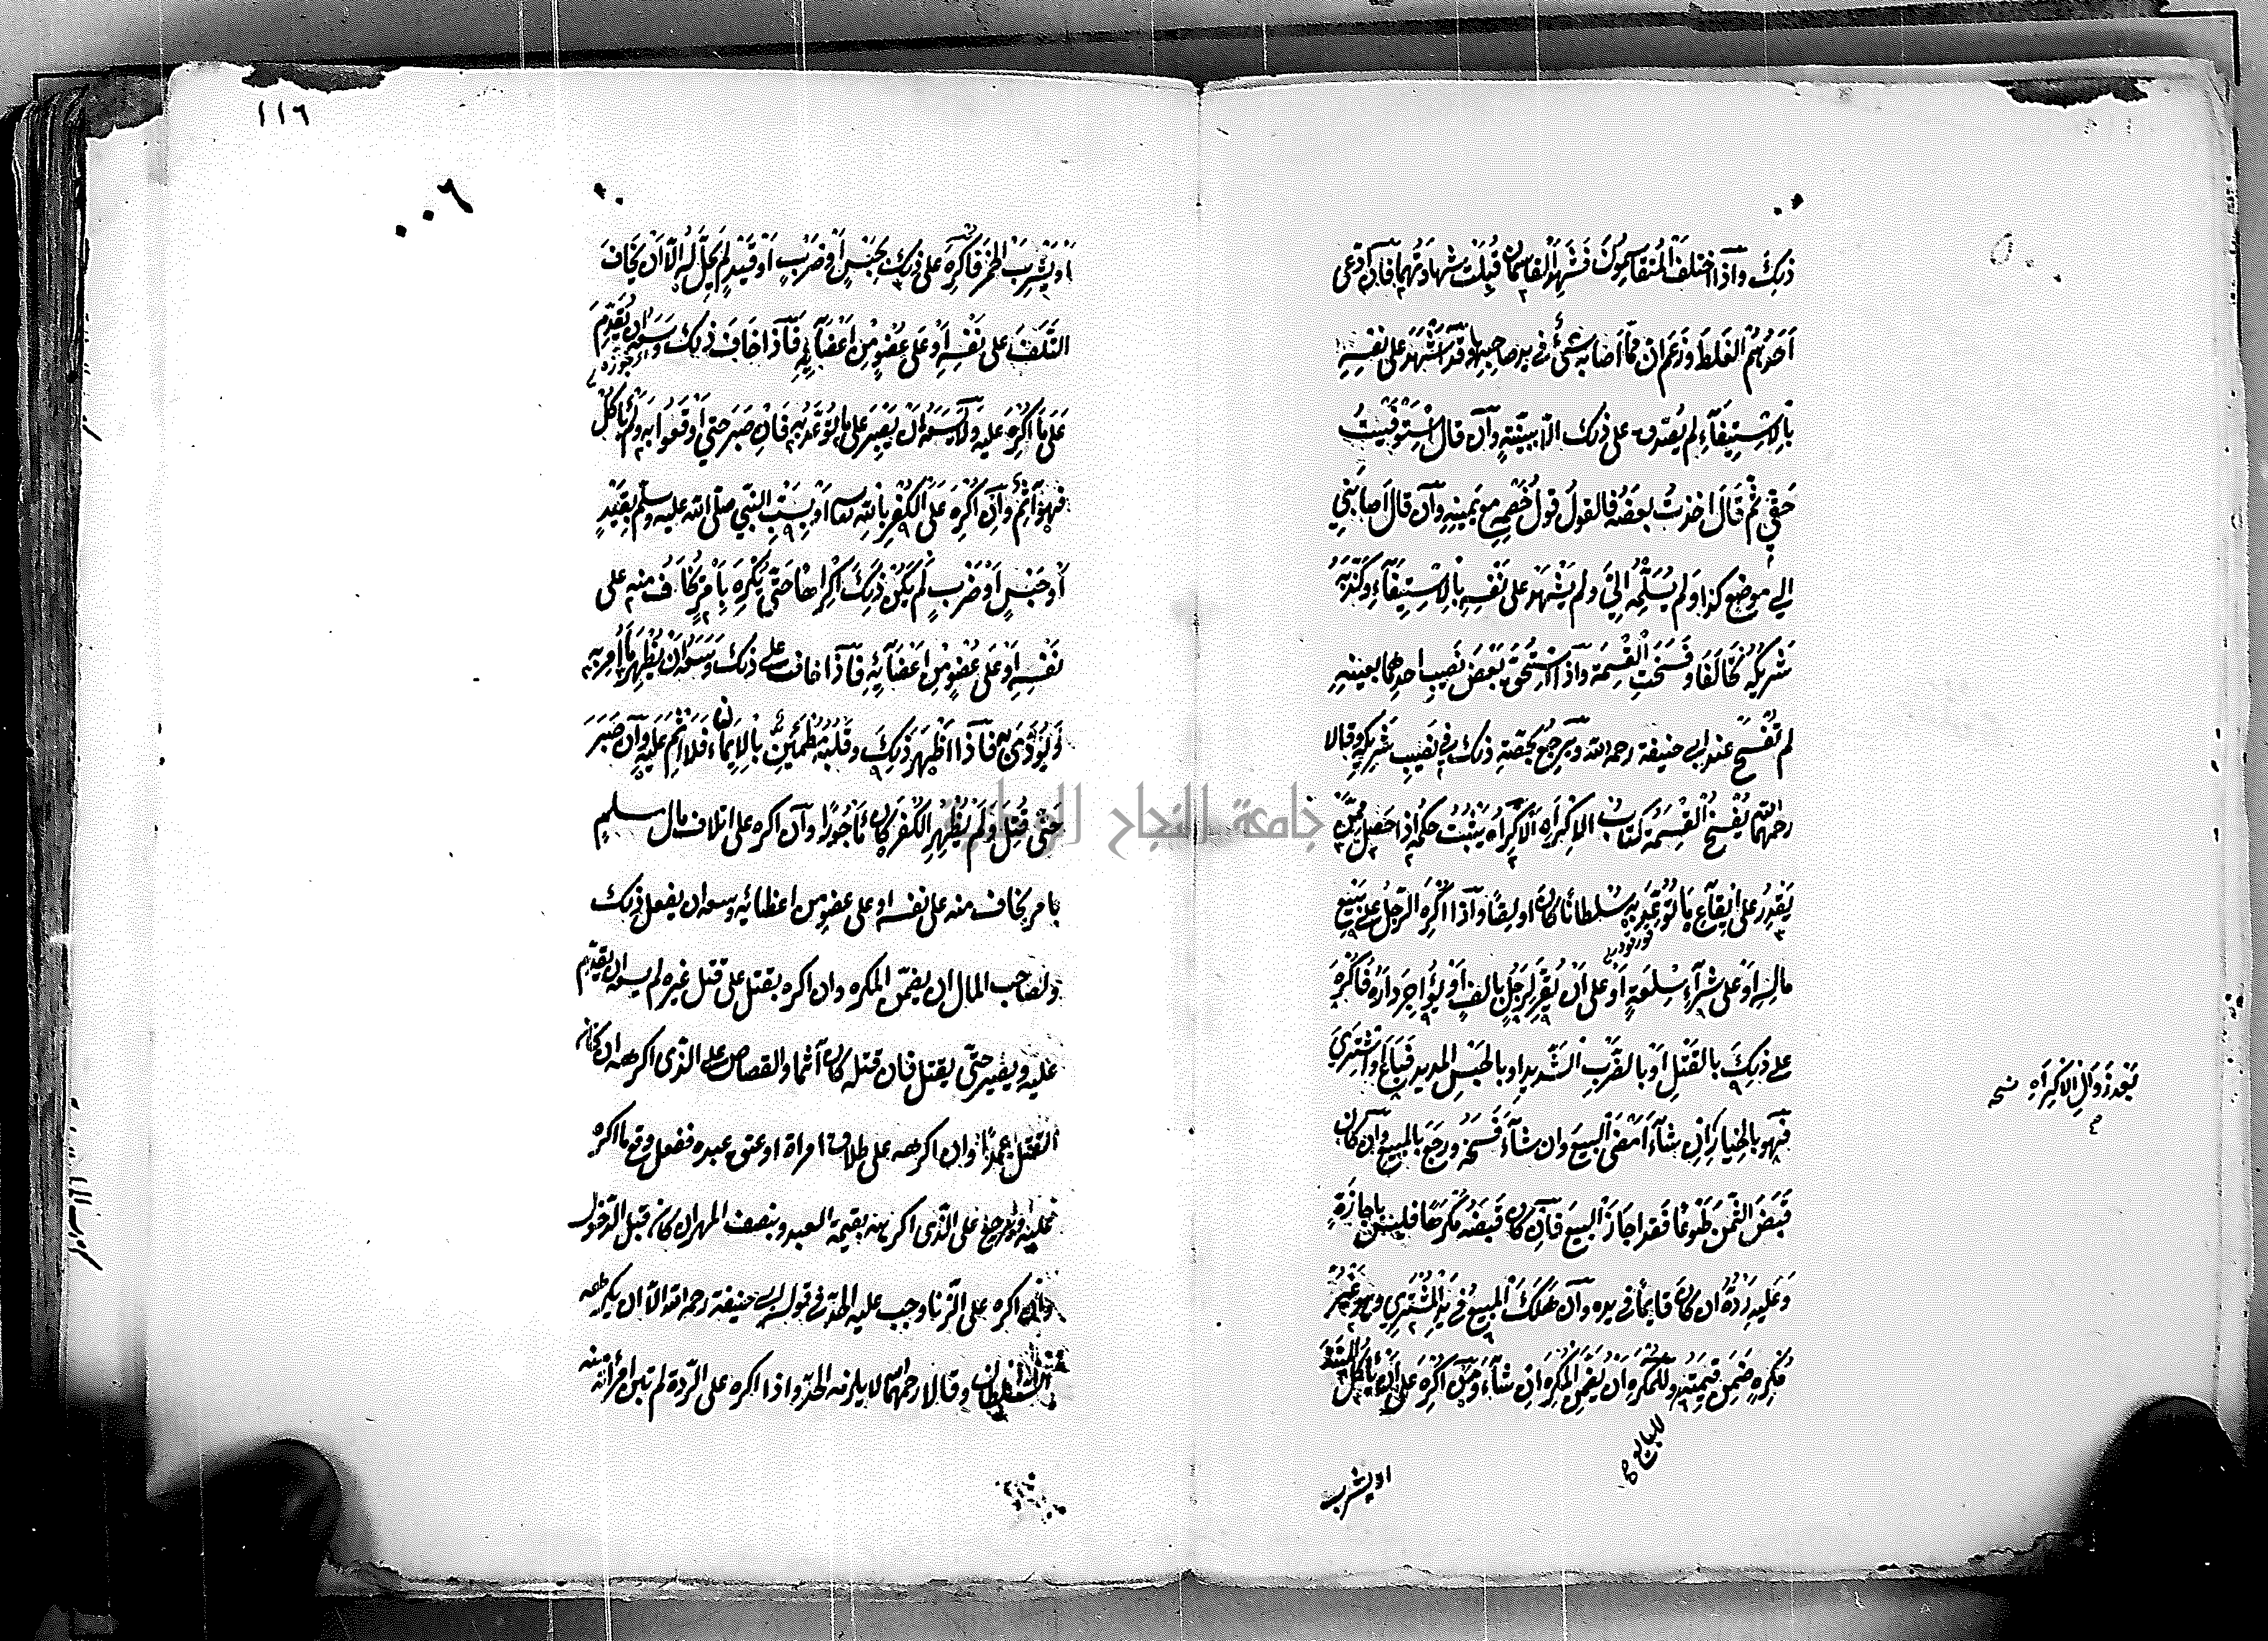 ذلك وَاذا اختلف المُتقاسمُونَ فَشَهِدَ القاسمان قُبِلَت شهادتهما فان ادّعى
اَحَدُهُم الغلط وزعم ان ممّا اصابه شئ في يد صاحبه وقد اشهد على نفسه
بالاستيفاء لم يُصَدق على ذلك الّا ببينة وان قال استوفيتُ
حَقّي ثم قال اخذتُ بعضه فالقولُ قولُ خصمه مع يمينه وان قال اصابني
الى موضع كذا ولم يُسلّمه اليّ ولم يشهد على نفسه بالاستيفاء وكذّبه
شريكه تحالفا وفسخت القسمة واذا استحق بعض نصيب احدهما بعينه
لم تُفسخ عند ابي حنيفة رحمه الله ويرجع بحصّته ذلك في نصيب شريكه وقالا
رحمهما الله يُفسخ القسمة كتاب الاكراه الاكراه يثبُتُ حكمه اذا حصل ممّن
يَقدِرُ على ايقاع ما توعّد به سلطانا كان او لصّا واذا اكره الرجل على بيع
ماله او على شراء سلعة او على ان يقرّ لرجل بالف او يؤاجر داره فاكره
على ذلك بالقتل او بالضّرب الشّديد او بالحبس المديد فباع او اشترى
فهو بالخيار ان شاء امضى البيع وان شاء فسخه ورجع بالمبيع وان كان
قبض الثمن طوعا فقد اجاز البيع فان كان قبضه مكرها فليس باجازة
وعليه ردّه ان كان قايما في يده وان هلك المبيع في يد المشتري وهو غير
مُكرَهٍ ضمن قيمته وللمُكرَه ان يُضمّن المُكرِه ان شاء ومن اُكره على ان يأكل الميتة
للبايع
او يشرب
بعد زوال الاكراه نسخه
١١٦
او يشرب الخمر فاكره على ذلك بحبس او ضرب او قيد لم يحلّ له الّا ان يخاف
التّلف على نفسه او على عضو من اعضائه فاذا خاف ذلك وسعه ان يقدم
على ما اُكره عليه ولا يسعه ان يصبر على ما توعّد به فان صبر حتى اوقعوا به ولم يأكل
فهو آثم وان اُكره على الكفر بالله تعا او بسبّ النبي صلى الله عليه وسلم بقيد
او حبس او ضرب لم يكن ذلك اكراها حتى يُكره بامر يخاف منه على
نفسه او على عضو من اعضائه فاذا خاف على ذلك وسعه ان يُظهر ما اُمر به
ويورّى به فاذا اظهر ذلك وقلبه مطمئن بالايمان فلا اثم عليه وان صبر
حتى قُتل ولم يُظهر الكفر كان مأجورا وان اكره على اتلاف مال مسلم
بامر يخاف منه على نفسه او على عضو من اعظائه وسعه ان يفعل ذلك
ولصاحب المال ان يضمّن المكره وان اكره بقتل على قتل غيره لم يسعه ان يقدم
عليه ويصبر حتى يقتل فان قتله كان آثما والقصاص على الذى اكرهه ان كان
القتل عمدًا وان اكرهه على طلاق امراة او عتق عبده ففعل وقع ما اكره
عليه ويرجع على الذى اكرهه بقيمة العبد وبنصف المهر ان كان قبل الدّخول
وان اكره على الزنا وجب عليه الحدّ في قول ابي حنيفة رحمه الله الّا ان يكرهه
السّلطان وقالا رحمهما لا يلزمه الحدّ واذا اكره على الرّدة لم تبن امرأته منه